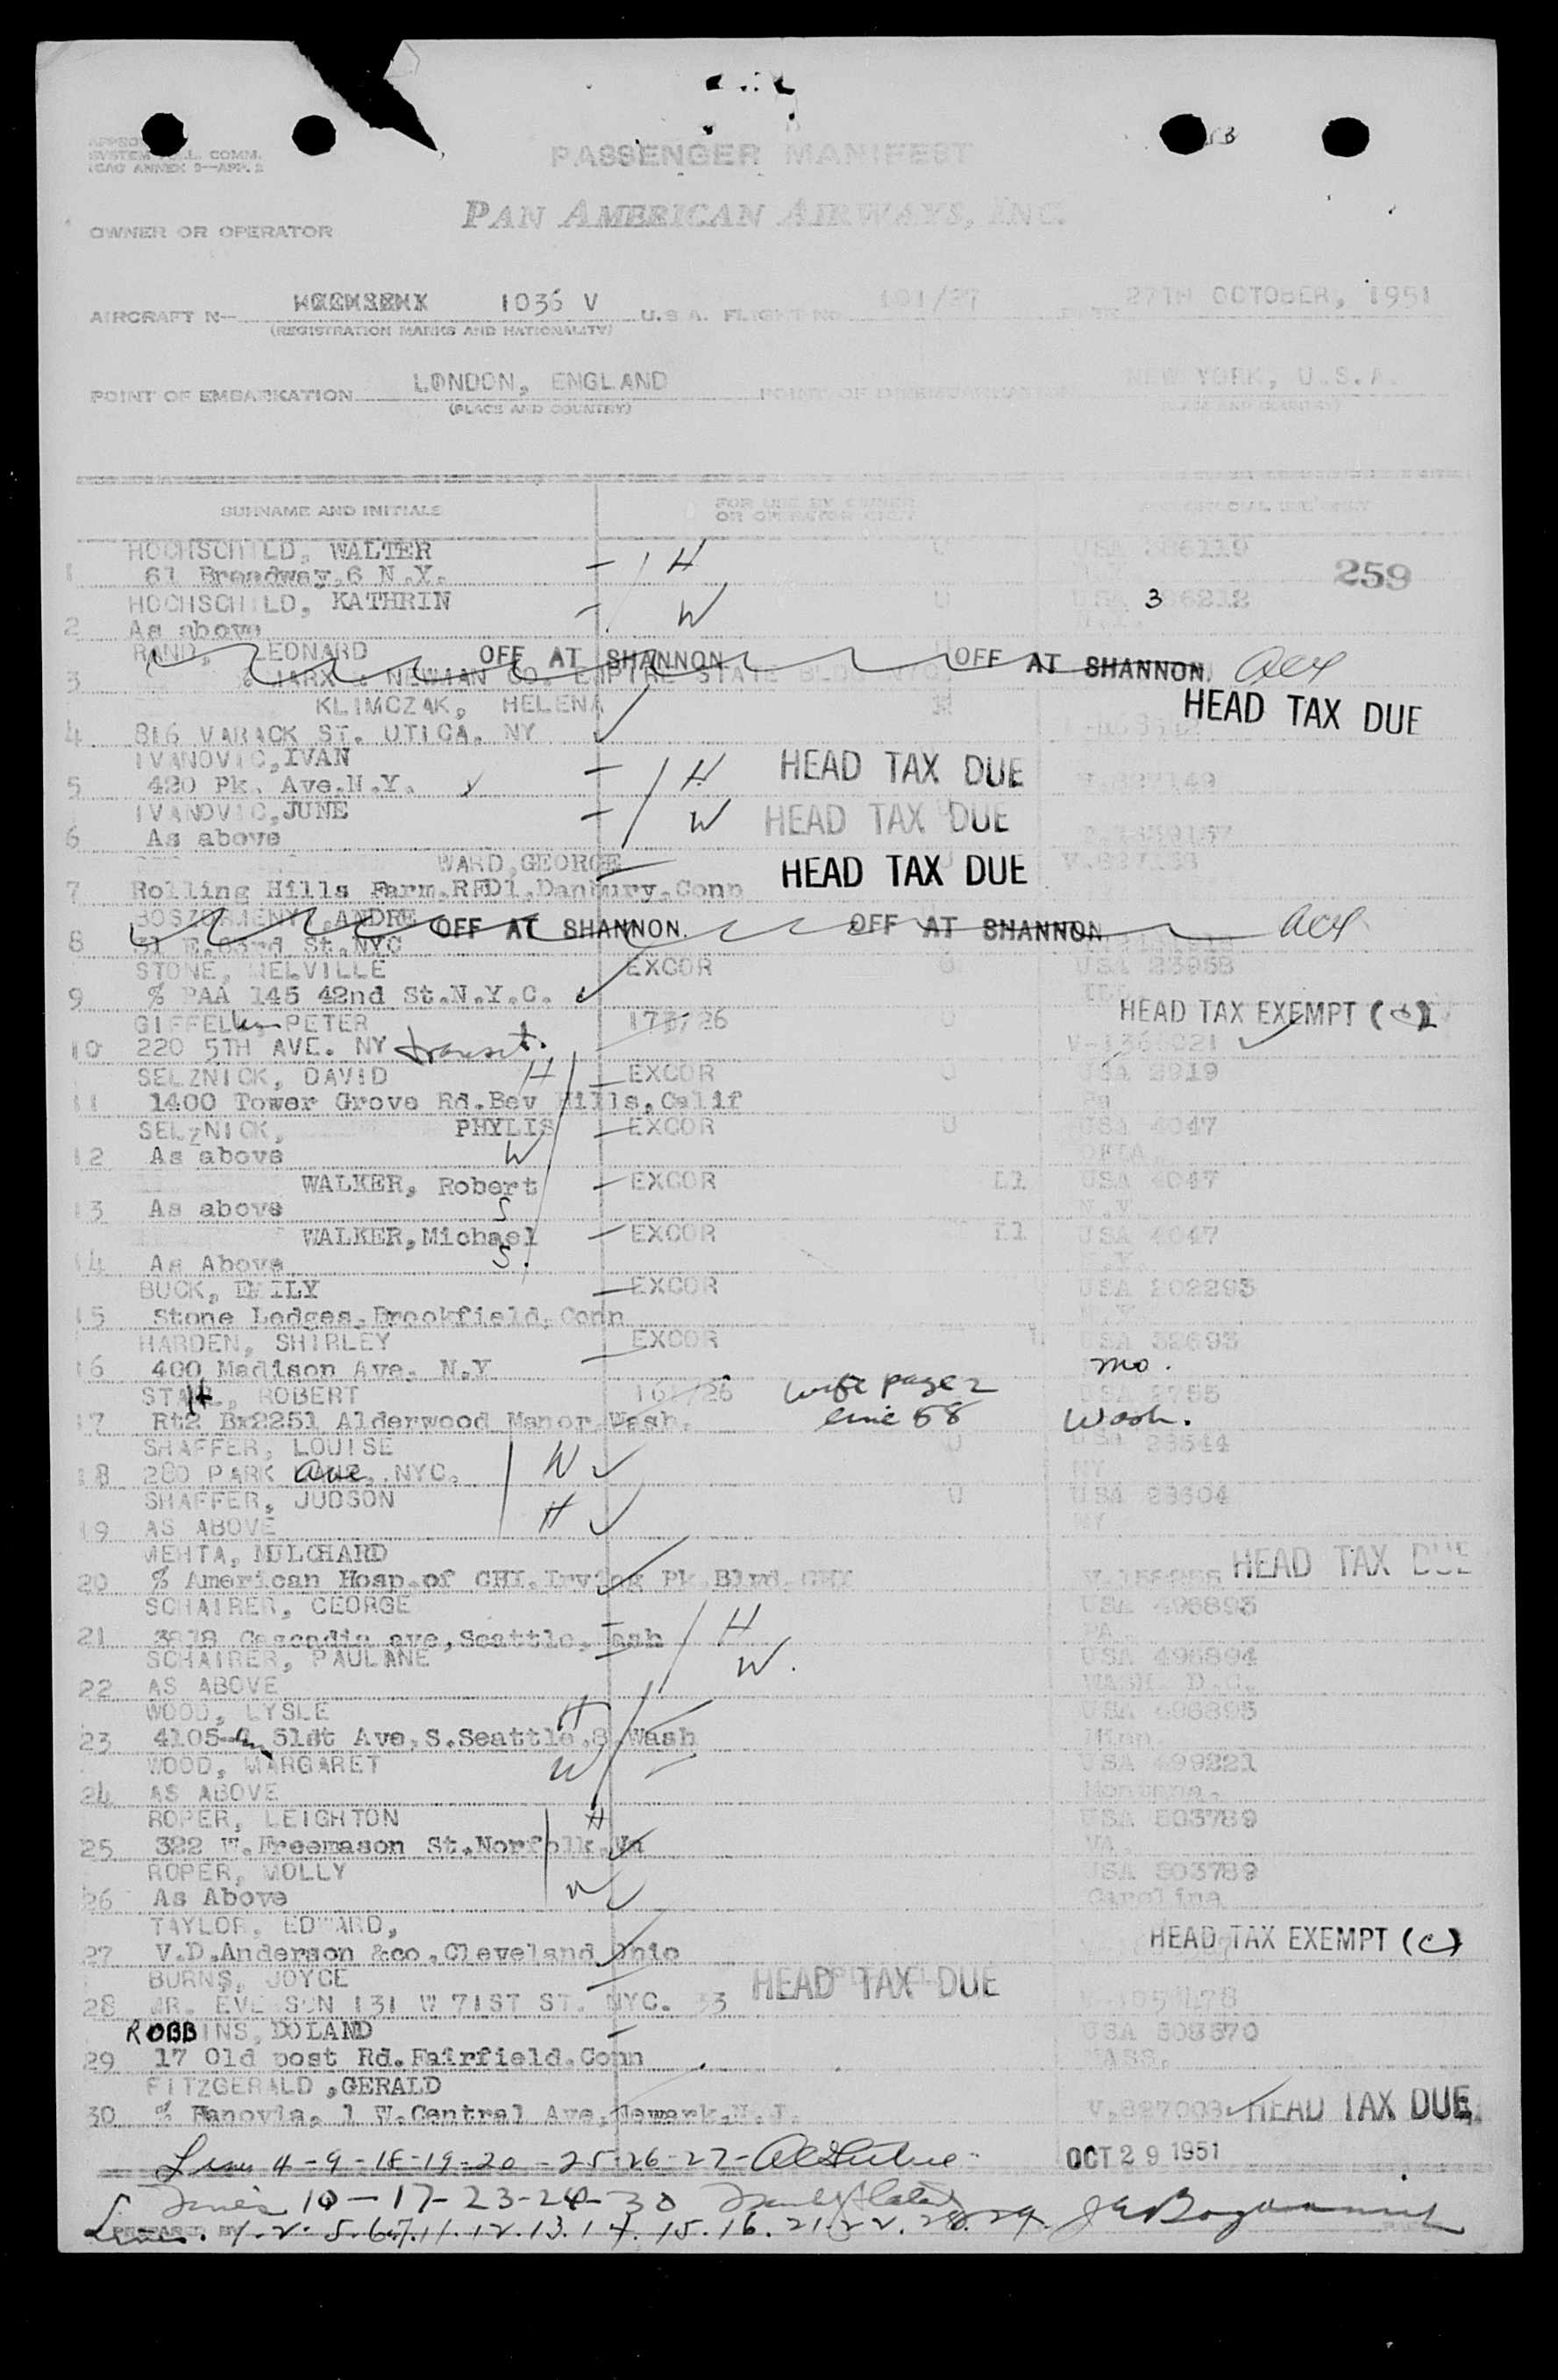 PASSENGER MANIFEST
PAN AMERICAN AIRWAYS, INC.
OWNER OR OPERATOR
AIRCRAFT N— 1036 V U.S.A. FLIGHT NO. 101/27 DATE 27TH OCTOBER, 1951
(REGISTRATION MARKS AND NATIONALITY)
POINT OF EMBARKATION LONDON, ENGLAND POINT OF DISEMBARKATION NEW YORK, U.S.A.
(PLACE AND COUNTRY) (PLACE AND COUNTRY)
SURNAME AND INITIALS FOR USE BY OWNER OR OPERATOR ONLY FOR OFFICIAL USE ONLY
HOCHSCHILD, WALTER H U
1 61 Broadway,6 N.Y. 259
HOCHSCHILD, KATHRIN W U USA 3 36212
2 As above
RAND, LEONARD OFF AT SHANNON OFF AT SHANNON
3 MARX & NEWMAN CO. EMPIRE STATE BLDG NYC
KLIMCZAK, HELENA HEAD TAX DUE
4 816 VARACK ST. UTICA. NY
IVANOVIC,IVAN H HEAD TAX DUE
5 420 Pk. Ave.N.Y.
IVANOVIC,JUNE W HEAD TAX DUE
6 As above
WARD,GEORGE HEAD TAX DUE
7 Rolling Hills Farm.RFD1,Danbury.Conn
ANDRE OFF AT SHANNON. OFF AT SHANNON
8 51 E.83rd St.NYC
STONE, MELVILLE EXCOR U USA 23958
9 % PAA 145 42nd St.N.Y.C.
PETER 173/26 U HEAD TAX EXEMPT
10 220 5TH AVE. NY transit.
SELZNICK, DAVID H EXCOR U USA 2919
11 1400 Tower Grove Rd.Bev Hills,Calif Pa
SELZNICK, PHYLIS EXCOR U USA 4047
12 As above W
WALKER, Robert EXCOR USA 4047
13 As above S N.Y.
WALKER,Michael EXCOR USA 4047
14 As Above S.
BUCK, EMILY EXCOR USA 202293
15 Stone Ledges.Brookfield.Conn
HARDEN, SHIRLEY EXCOR USA 32693
16 400 Madison Ave. N.Y mo.
ROBERT 161/26 wife page 2 USA 2755
17 Rt2 Bx2251 Alderwood Manor Wash. line 58 Wash.
SHAFFER, LOUISE W U USA 23544
18 280 PARK Ave, NYC. NY
SHAFFER, JUDSON H U USA 23604
19 AS ABOVE NY
MEHTA, MULCHARD HEAD TAX DUE
20 % American Hosp.of CHI.Irving Pk Blvd.CHI
SCHAIRER, GEORGE H USA 496893
21 3818 Cascadia ave,Seattle, Wash PA.
SCHAIRER, PAULANE W. USA 496894
22 AS ABOVE WASH. D.C.
WOOD, LYSLE H USA 496895
23 4105 51st Ave,S.Seattle,8 Wash Minn.
WOOD, MARGARET W USA 499221
24 AS ABOVE Montana.
ROPER, LEIGHTON H USA 503789
25 322 W.Freemason St.Norfolk.Va VA.
ROPER, MOLLY W USA 503789
26 As Above Carolina
TAYLOR, EDWARD, HEAD TAX EXEMPT (c)
27 V.D.Anderson &co.Cleveland Ohio
BURNS, JOYCE HEAD TAX DUE
28 MR. EVENSON 131 W 71ST ST. NYC. 33
ROBBINS, DOLAND USA 503570
29 17 Old post Rd.Fairfield.Conn MASS.
FITZGERALD ,GERALD
30 % Hanovia, 1 W.Central Ave,Newark.N.J. V.827003 HEAD TAX DUE
Lines 4-9-18-19-20-25-26-27- OCT 29 1951
Lines 10-17-23-24-30
PREPARED BY
Lines. 1-2-5.6.7.11.12.13.14.15.16.21.22.28.29.